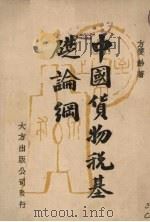 方宗鰲著
中國貨物稅基
礎論綱
大方出版公司發行